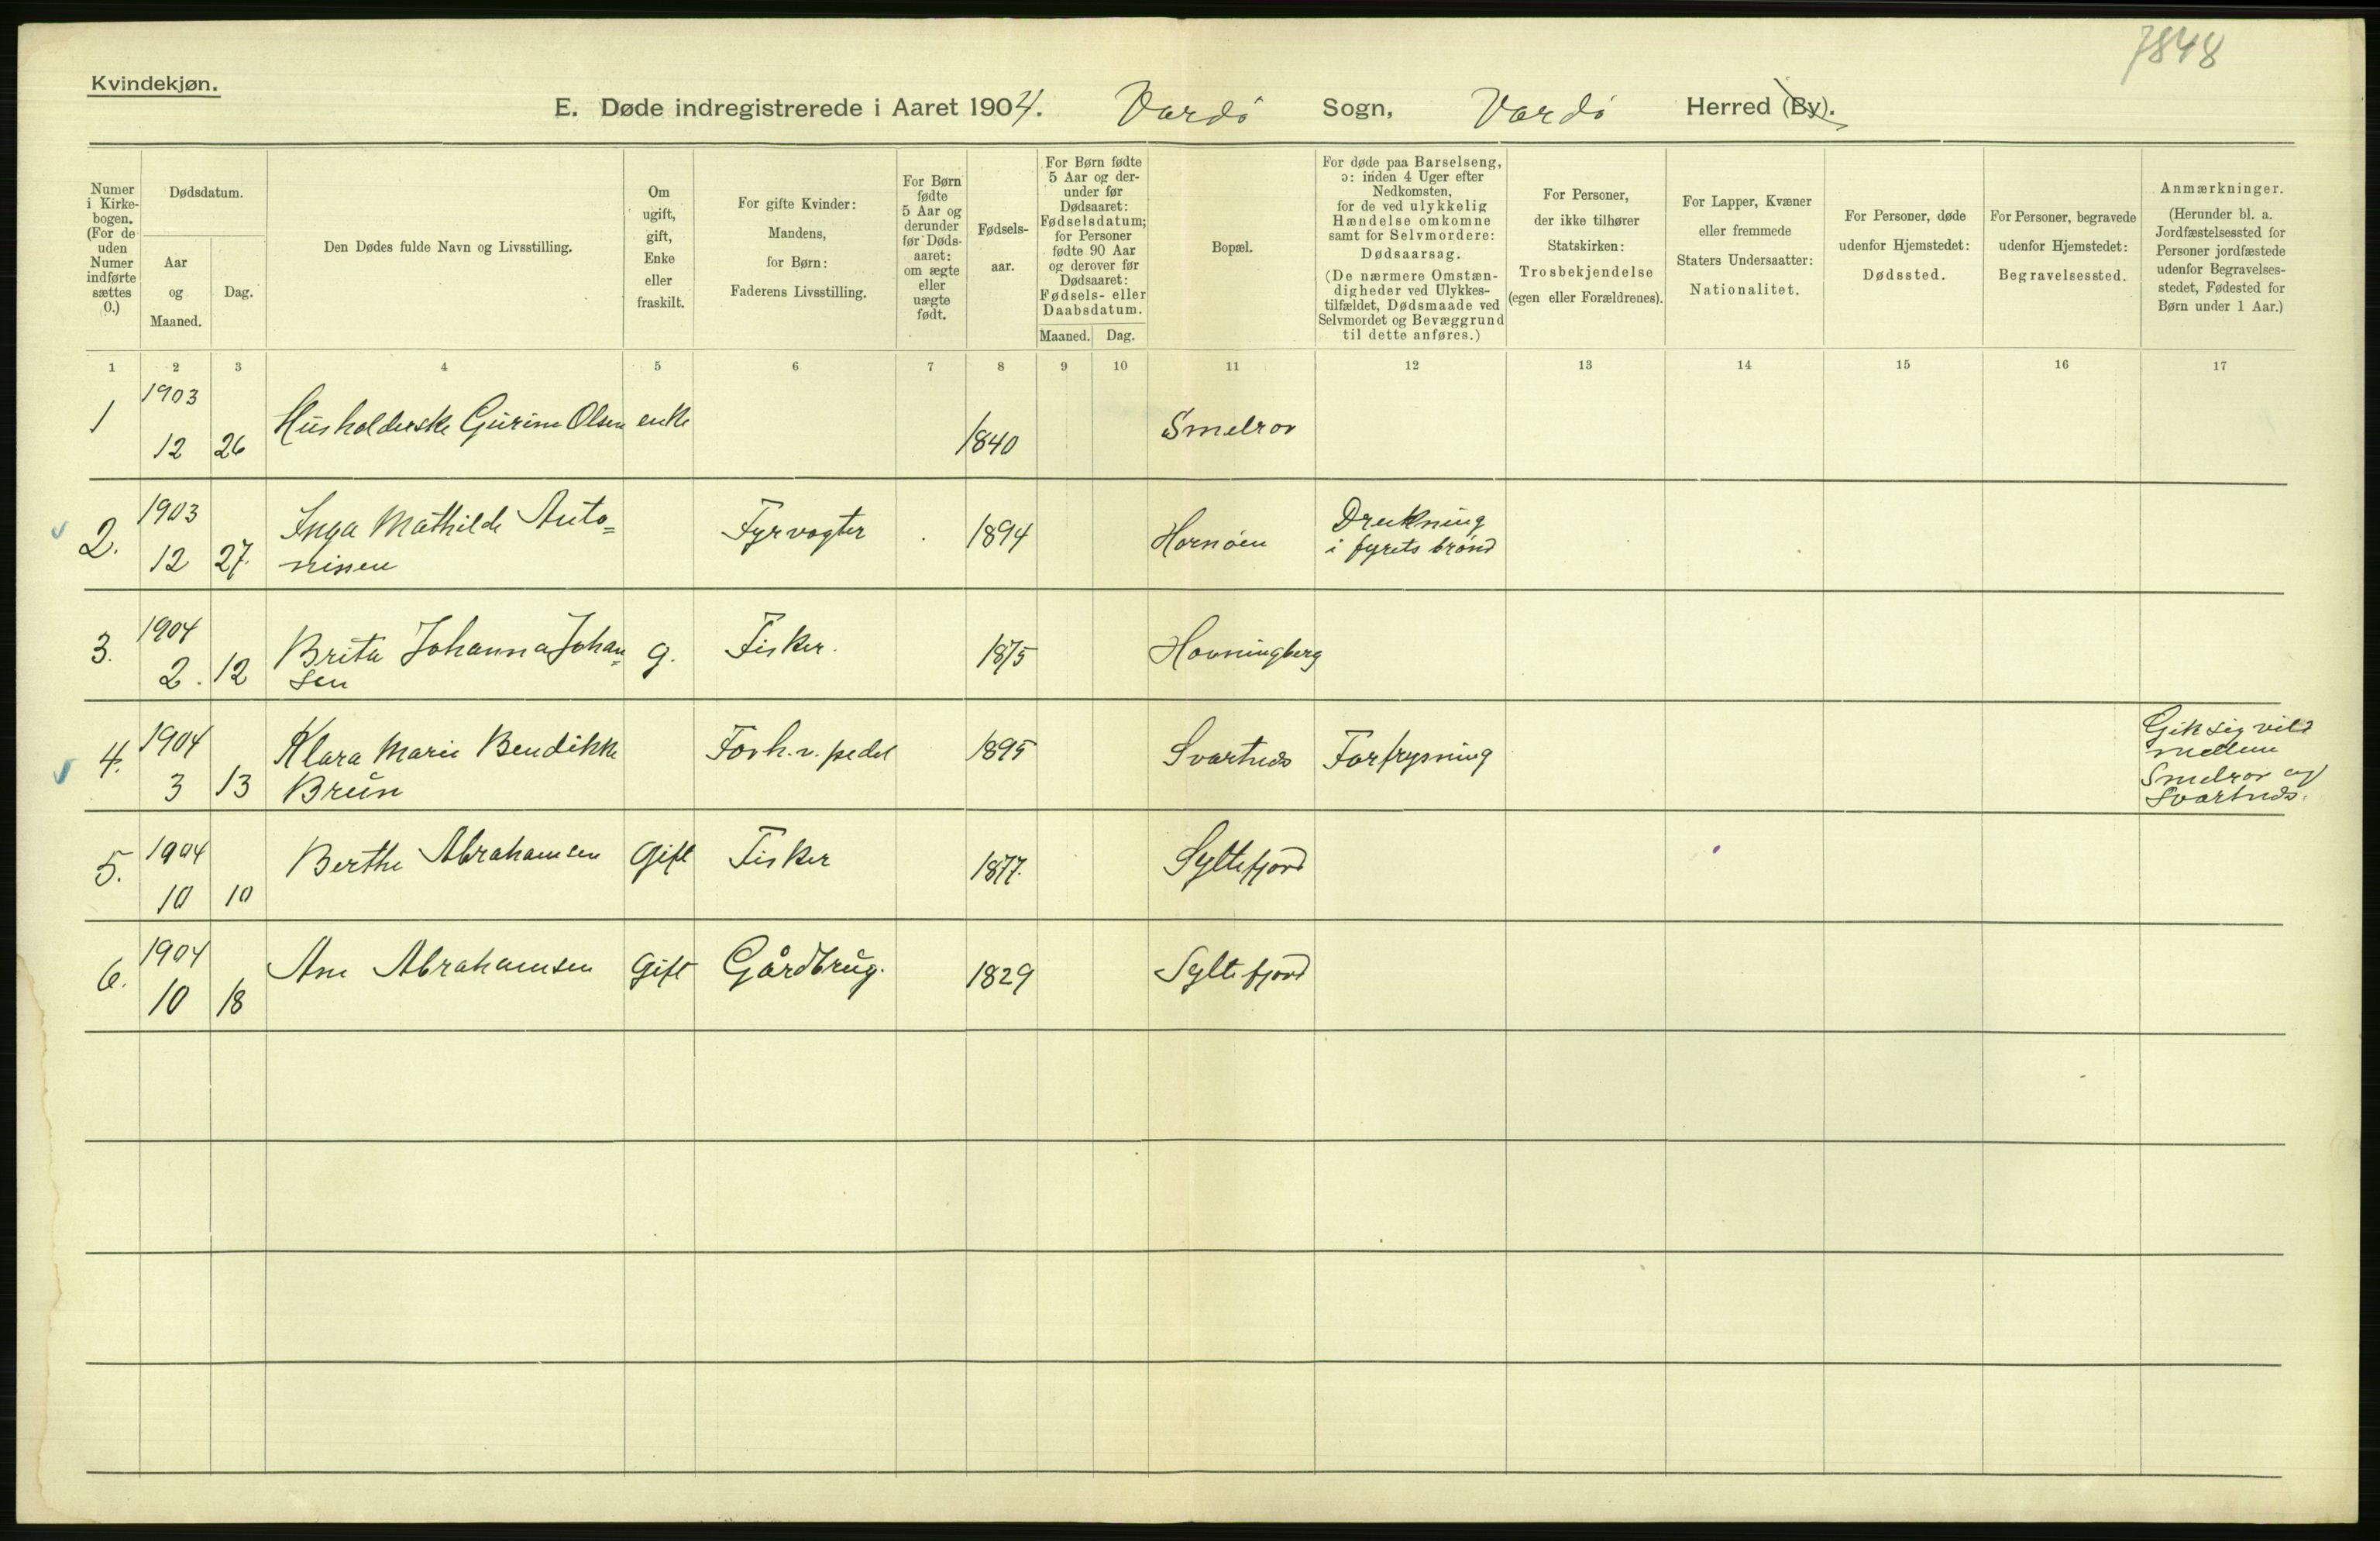 7848
Kvindekjøn.
E. Døde indregistrerede i Aaret 1904. Vardö Sogn, Vardö Herred (By).
Numer
i Kirke-
bogen.
(For de
uden
Numer
indførte
sættes
0.)
Dødsdatum.
Aar
og
Maaned.
Dag.
Den Dødes fulde Navn og Livsstilling.
Om
ugift,
gift,
Enke
eller
fraskilt.
For gifte Kvinder:
Mandens,
for Børn:
Faderens Livsstilling.
For Børn
fødte
5 Aar og
derunder
før Døds-
aaret:
om ægte
eller
uægte
født.
Fødsels-
aar.
For Børn fødte
5 Aar og der-
under før
Dødsaaret:
Fødselsdatum;
for Personer
fødte 90 Aar
og derover før
Dødsaaret:
Fødsels- eller
Daabsdatum.
Maaned. Dag.
Bopæl.
For døde paa Barselseng,
ɔ: inden 4 Uger efter
Nedkomsten,
for de ved ulykkelig
Hændelse omkomne
samt for Selvmordere:
Dødsaarsag.
(De nærmere Omstæn-
digheder ved Ulykkes-
tilfældet, Dødsmaade ved
Selvmordet og Bevæggrund
til dette anføres.)
For Personer,
der ikke tilhører
Statskirken:
Trosbekjendelse
(egen eller Forældrenes).
For Lapper, Kvæner
eller fremmede
Staters Undersaatter:
Nationalitet.
For Personer, døde
udenfor Hjemstedet:
Dødssted.
For Personer, begravede
udenfor Hjemstedet:
Begravelsessted.
Anmærkninger.
(Herunder bl. a.
Jordfæstelsessted for
Personer jordfæstede
udenfor Begravelses-
stedet, Fødested for
Børn under 1 Aar.)
1 2 3 4 5 6 7 8 9 10 11 12 13 14 15 16 17
1 1903
12 26 Husholderske Gurine Olsen enke 1840 Smelror
2. 1903
12 27. Inga Mathilde Anto=
nissen Fyrvogter 1894 Hornöen Drukning
i fyrets brønd
3. 1904
2. 12 Brita Johanna Johan=
sen g. Fisker. 1875 Havningberg
4. 1904
3 13 Klara Marie Bendikke
Brun Forh.v. pedel 1895 Svartnes Forfrysning
Gik sig vild
mellem
Smelror og
Svartnes.
5. 1904
10 10 Berthe Abrahamsen Gift Fisker 1877. Syltefjord
6. 1904
10 18 Ane Abrahamsen Gift Gårdbrug. 1829 Syltefjord